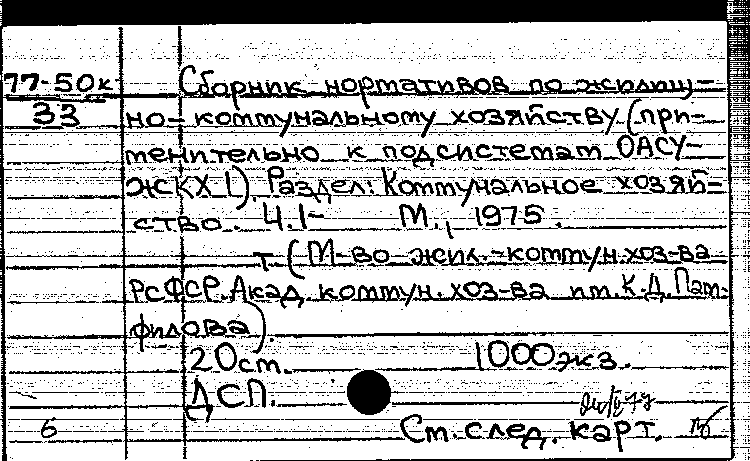 77-50к Сборник нормативов по жилищ-
33 но-коммунальному хозяйству (при-
менительно к подсистемам ОАСУ-
ЖКХ I). Раздел: Коммунальное хозяй-
ство. Ч.1- М., 1975.
т. (М-во жил.-коммун.хоз-ва
РСФСР. Акад. коммун. хоз-ва им. К.Д. Пам-
филова).
20см. 1000экз.
ДСП.
6 См. след. карт.